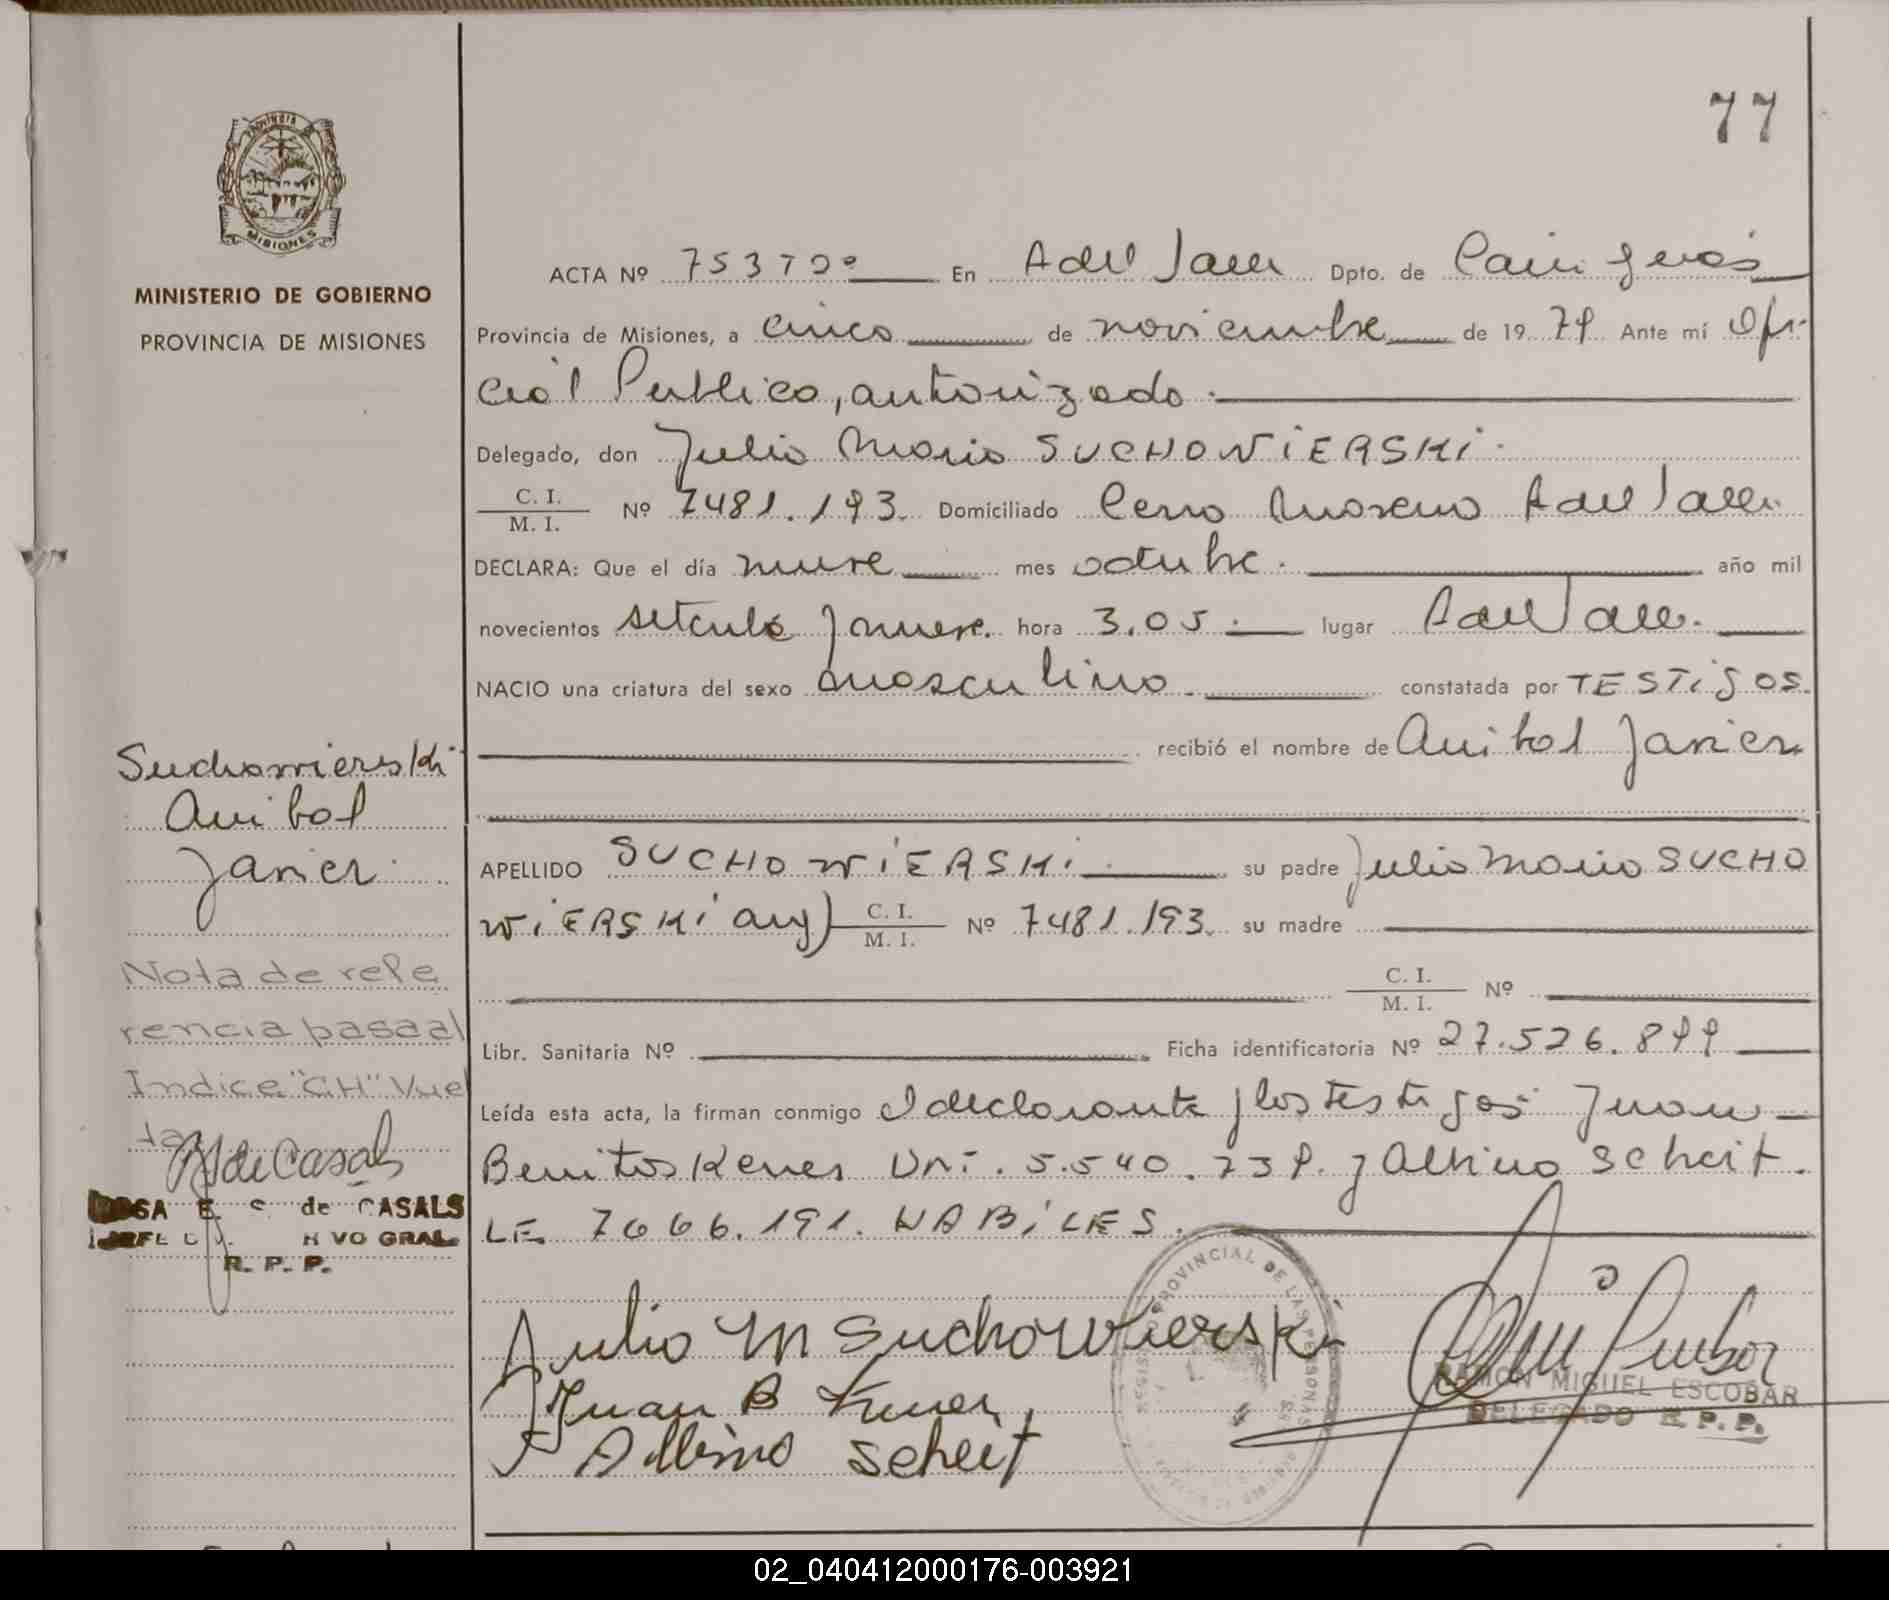 77
PROVINCIA DE
MISIONES
MINISTERIO DE GOBIERNO
PROVINCIA DE MISIONES
ACTA Nº En Dpto. de Cain guás
Provincia de Misiones, a cinco de noviembre de 19 79 Ante mí Ofi-
cial Publico, autorizado.
Delegado, don Julio Mario SUCHOWiERSKi.
C. I.
M. I.
Nº 7481.193. Domiciliado Cerro Moreno
DECLARA: Que el día nueve mes octubre. año mil
novecientos setenta y nueve. hora 3.05. lugar
NACIO una criatura del sexo masculino. constatada por TESTiGOS.
recibió el nombre de Anibal Javier
Suchowierski
Anibal
Javier.
APELLIDO SUCHOWiERSKi. su padre Julio Mario SUCHO
WiERSKi arg) C. I.
M. I.
Nº 7481.193. su madre
C. I.
M. I.
Nº
Libr. Sanitaria Nº Ficha identificatoria Nº 27.526.899
Leída esta acta, la firman conmigo el declarante y los testigos Juan
Benitos DNi. 5.540.739. y Albino Scheit.
LE 7666.191. HABiLES.
Nota de refe
rencia pasa al
Indice "CH" Vuel
ta
RdeCasals
ROSA E. S. de CASALS
JEFE GRAL.
R. P. P.
Julio M Suchowierski
Juan B
Albino Scheit
REGISTRO PROVINCIAL DE LAS PERSONAS
RAMON MIGUEL ESCOBAR
DELEGADO R. P. P.
02_040412000176-003921